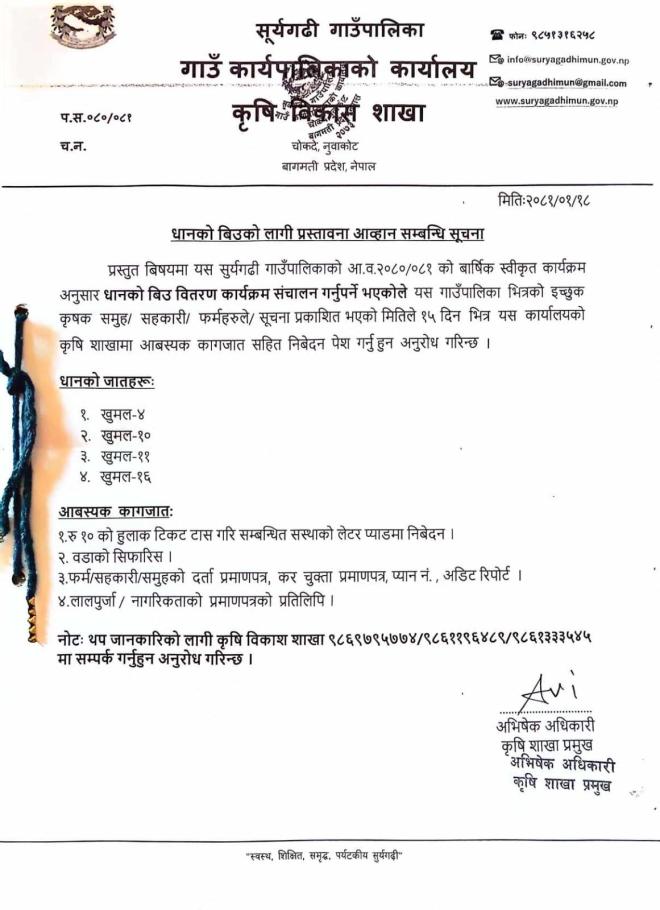 सूर्यगढी गाउँपालिका
गाउँ कार्यपालिकाको कार्यालय
कृषि विकास शाखा
चोकदे, नुवाकोट
बागमती प्रदेश, नेपाल
फोनः ९८५१३१६२५८
info@suryagadhimun.gov.np
suryagadhimun@gmail.com
www.suryagadhimun.gov.np
प.स.०८०/०८१
च.न.
मितिः२०८१/०१/१८
धानको बिउको लागी प्रस्तावना आव्हान सम्बन्धि सूचना
प्रस्तुत बिषयमा यस सुर्यगढी गाउँपालिकाको आ.व.२०८०/०८१ को बार्षिक स्वीकृत कार्यक्रम
अनुसार धानको बिउ वितरण कार्यक्रम संचालन गर्नुपर्ने भएकोले यस गाउँपालिका भित्रको इच्छुक
कृषक समुह/ सहकारी/ फर्महरुले/ सूचना प्रकाशित भएको मितिले १५ दिन भित्र यस कार्यालयको
कृषि शाखामा आबस्यक कागजात सहित निबेदन पेश गर्नु हुन अनुरोध गरिन्छ ।
धानको जातहरूः
१. खुमल-४
२. खुमल-१०
३. खुमल-११
४. खुमल-१६
आबस्यक कागजात:
१.रु १० को हुलाक टिकट टास गरि सम्बन्धित सस्थाको लेटर प्याडमा निबेदन ।
२. वडाको सिफारिस ।
३.फर्म/सहकारी/समुहको दर्ता प्रमाणपत्र, कर चुक्ता प्रमाणपत्र, प्यान नं. , अडिट रिपोर्ट ।
४.लालपुर्जा / नागरिकताको प्रमाणपत्रको प्रतिलिपि ।
नोटः थप जानकारिको लागी कृषि विकाश शाखा ९८६९७९५७७४/९८६११९६४८९/९८६१३३३५४५
मा सम्पर्क गर्नुहुन अनुरोध गरिन्छ ।
अभिषेक अधिकारी
कृषि शाखा प्रमुख
अभिषेक अधिकारी
कृषि शाखा प्रमुख
"स्वस्थ, शिक्षित, समृद्ध, पर्यटकीय सुर्यगढी"